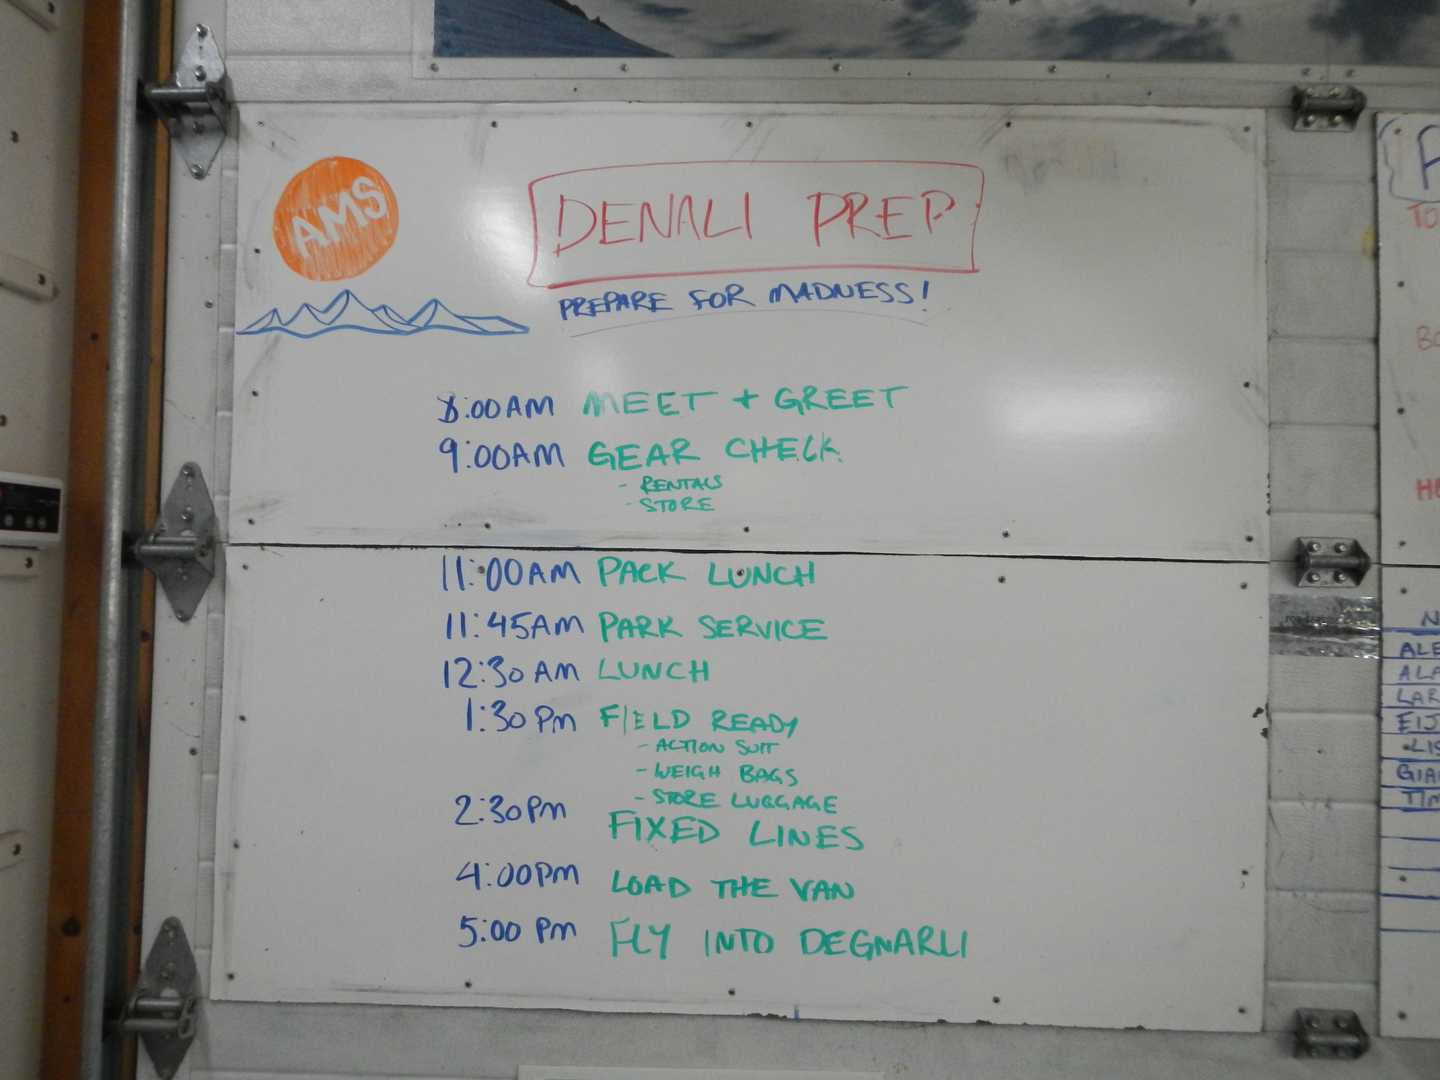 AMS
DENALI PREP
PREPARE FOR MADNESS!
8:00AM MEET + GREET
9:00AM GEAR CHECK
- RENTALS
- STORE
11:00AM PACK LUNCH
11:45AM PARK SERVICE
12:30AM LUNCH
1:30PM FIELD READY
- ACTION SUIT
- WEIGH BAGS
- STORE LUGGAGE
2:30PM FIXED LINES
4:00PM LOAD THE VAN
5:00 PM FLY INTO DEGNARLI
TO
BO
N
ALE
ALA
LAR
EIJ
LIS
GIA
TIM